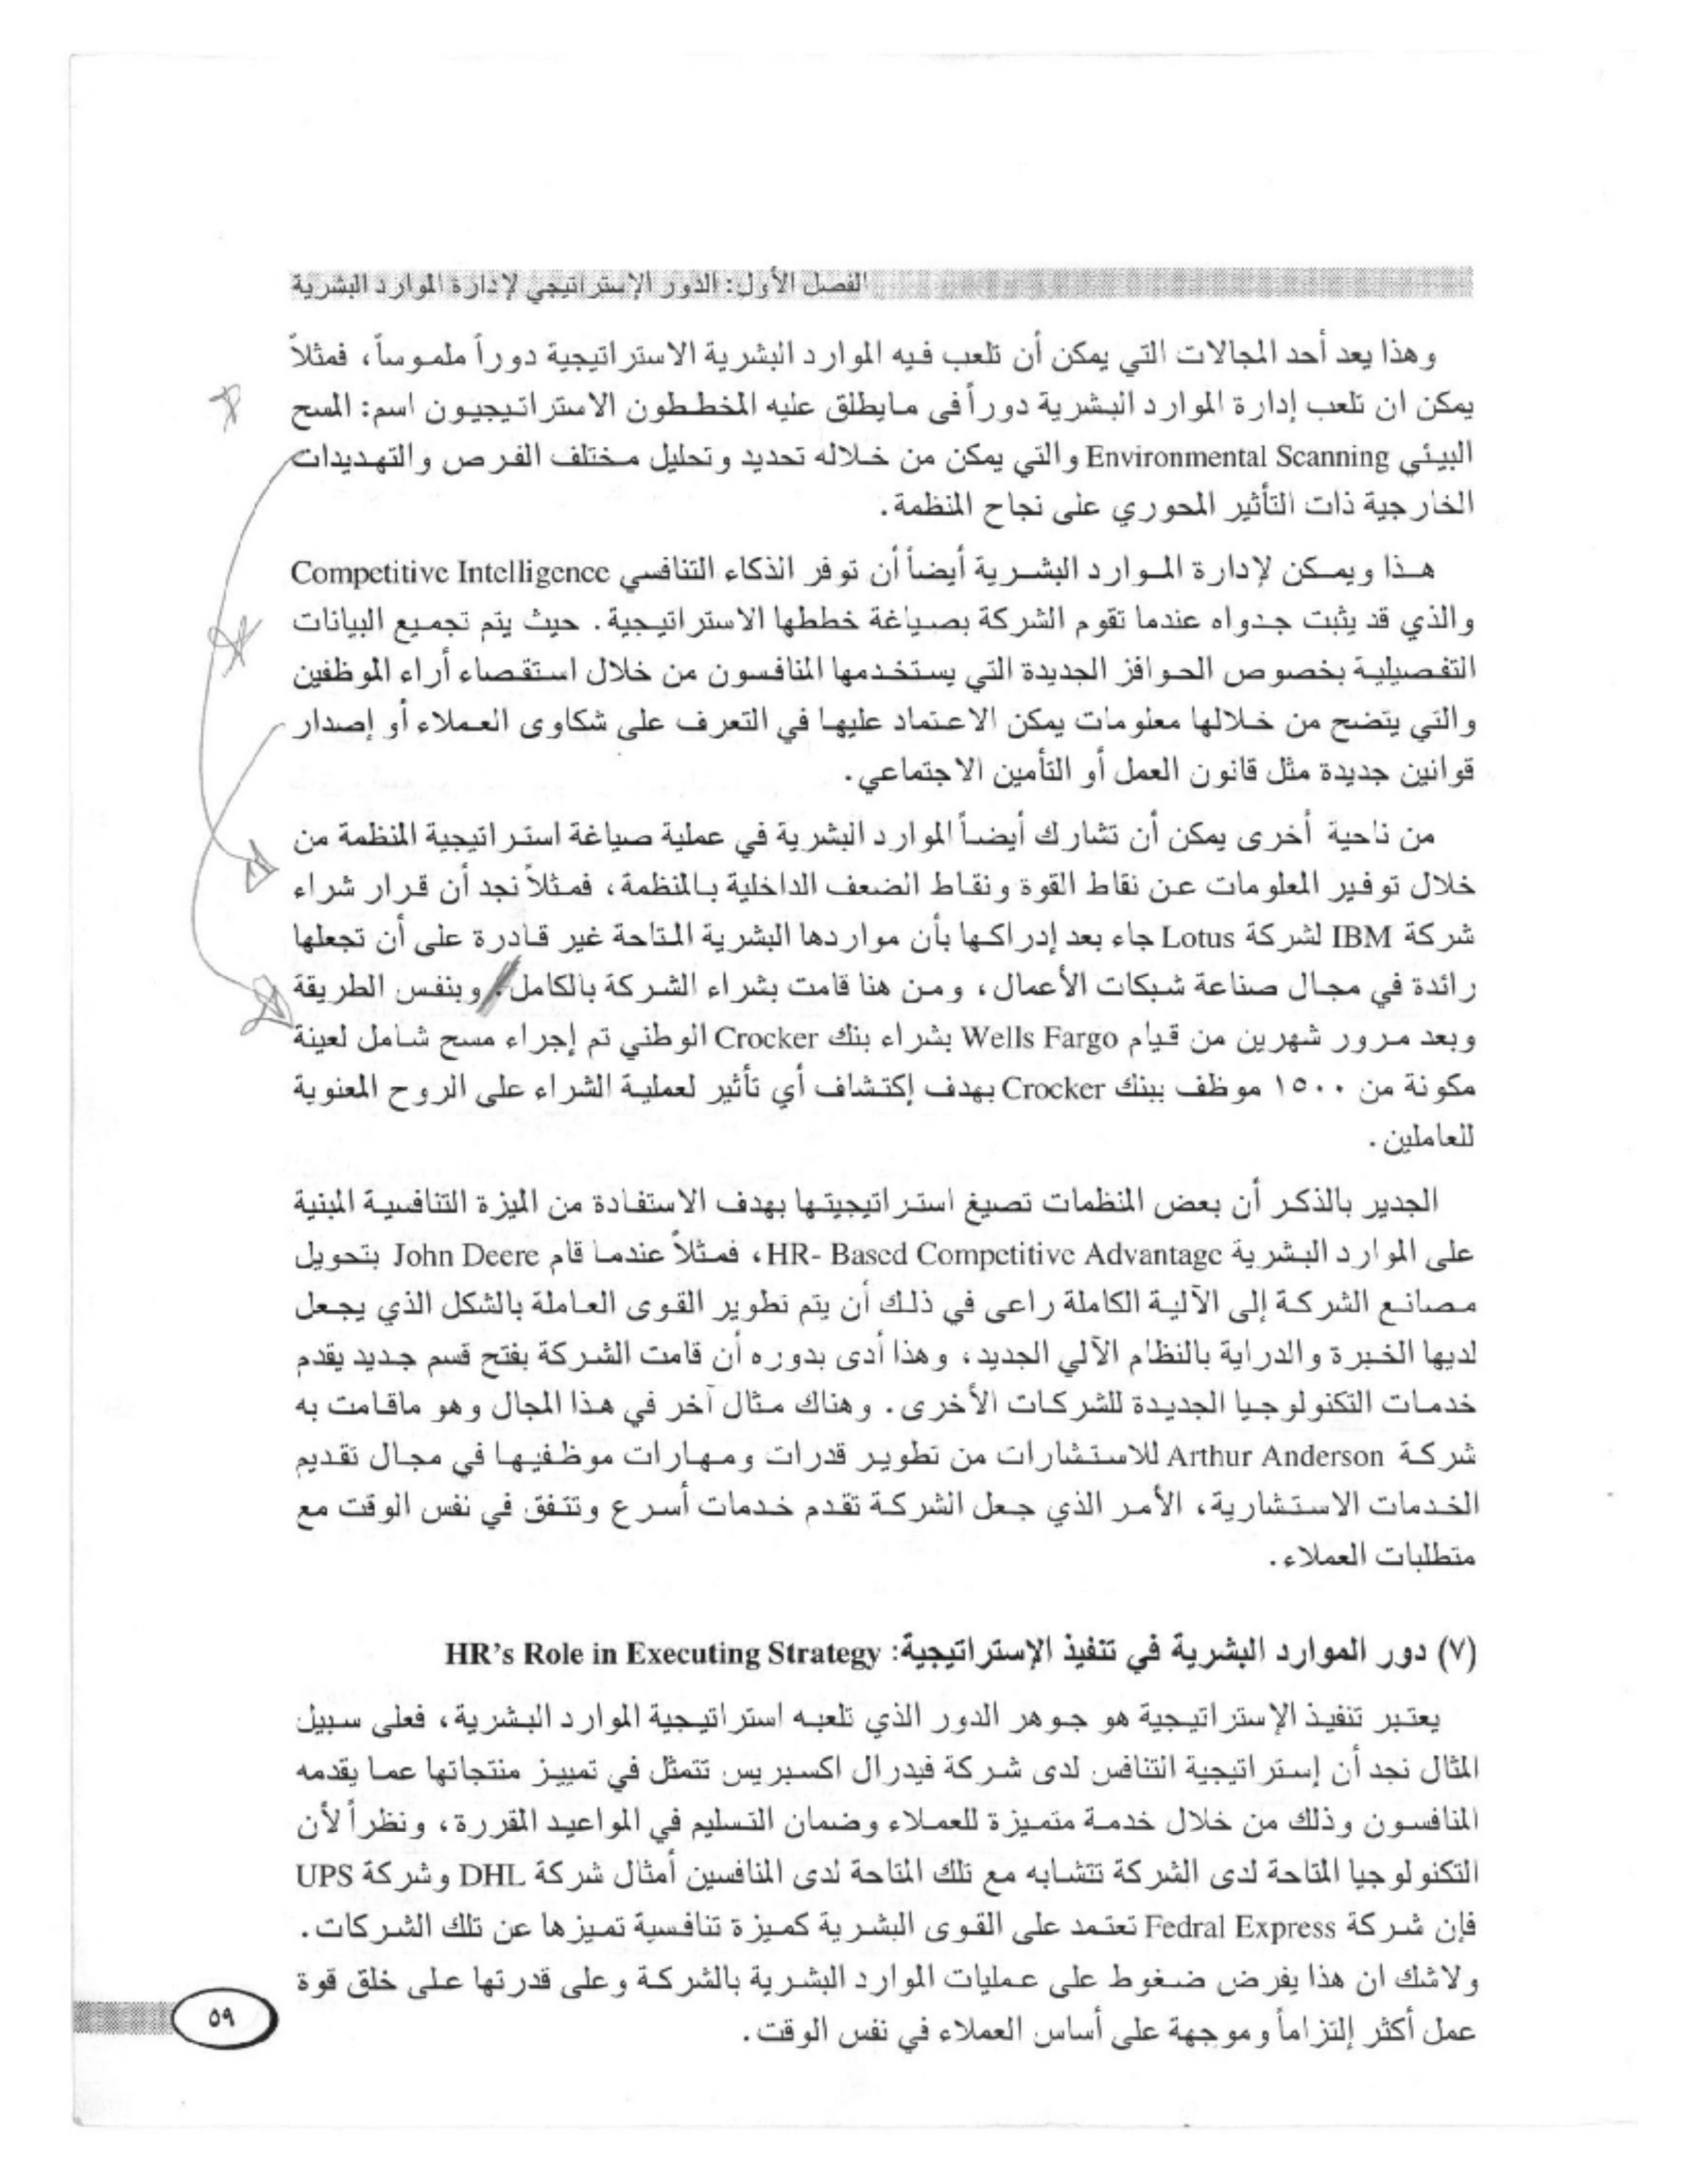 الفصل الأول: الدور الإستراتيجي لإدارة الموارد البشرية
وهذا يعد أحد المجالات التي يمكن أن تلعب فيه الموارد البشرية الاستراتيجية دوراً ملموساً، فمثلاً
يمكن ان تلعب إدارة الموارد البشرية دوراً فى مايطلق عليه المخططون الاستراتيجيون اسم: المسح
البيئي Environmental Scanning والتي يمكن من خلاله تحديد وتحليل مختلف الفرص والتهديدات
الخارجية ذات التأثير المحوري على نجاح المنظمة.
هذا ويمكن لإدارة الموارد البشرية أيضاً أن توفر الذكاء التنافسي Competitive Intelligence
والذي قد يثبت جدواه عندما تقوم الشركة بصياغة خططها الاستراتيجية. حيث يتم تجميع البيانات
التفصيلية بخصوص الحوافز الجديدة التي يستخدمها المنافسون من خلال استقصاء أراء الموظفين
والتي يتضح من خلالها معلومات يمكن الاعتماد عليها في التعرف على شكاوى العملاء أو إصدار
قوانين جديدة مثل قانون العمل أو التأمين الاجتماعي.
من ناحية أخرى يمكن أن تشارك أيضاً الموارد البشرية في عملية صياغة استراتيجية المنظمة من
خلال توفير المعلومات عن نقاط القوة ونقاط الضعف الداخلية بالمنظمة، فمثلاً نجد أن قرار شراء
شركة IBM لشركة Lotus جاء بعد إدراكها بأن مواردها البشرية المتاحة غير قادرة على أن تجعلها
رائدة في مجال صناعة شبكات الأعمال، ومن هنا قامت بشراء الشركة بالكامل. وبنفس الطريقة
وبعد مرور شهرين من قيام Wells Fargo بشراء بنك Crocker الوطني تم إجراء مسح شامل لعينة
مكونة من ١٥٠٠ موظف ببنك Crocker بهدف إكتشاف أي تأثير لعملية الشراء على الروح المعنوية
للعاملين.
الجدير بالذكر أن بعض المنظمات تصيغ استراتيجيتها بهدف الاستفادة من الميزة التنافسية المبنية
على الموارد البشرية HR- Based Competitive Advantage، فمثلاً عندما قام John Deere بتحويل
مصانع الشركة إلى الآلية الكاملة راعى في ذلك أن يتم تطوير القوى العاملة بالشكل الذي يجعل
لديها الخبرة والدراية بالنظام الآلي الجديد، وهذا أدى بدوره أن قامت الشركة بفتح قسم جديد يقدم
خدمات التكنولوجيا الجديدة للشركات الأخرى. وهناك مثال آخر في هذا المجال وهو ماقامت به
شركة Arthur Anderson للاستشارات من تطوير قدرات ومهارات موظفيها في مجال تقديم
الخدمات الاستشارية، الأمر الذي جعل الشركة تقدم خدمات أسرع وتتفق في نفس الوقت مع
متطلبات العملاء.
(٧) دور الموارد البشرية في تنفيذ الإستراتيجية: HR's Role in Executing Strategy
يعتبر تنفيذ الإستراتيجية هو جوهر الدور الذي تلعبه استراتيجية الموارد البشرية، فعلى سبيل
المثال نجد أن إستراتيجية التنافس لدى شركة فيدرال اكسبريس تتمثل في تمييز منتجاتها عما يقدمه
المنافسون وذلك من خلال خدمة متميزة للعملاء وضمان التسليم في المواعيد المقررة، ونظراً لأن
التكنولوجيا المتاحة لدى الشركة تتشابه مع تلك المتاحة لدى المنافسين أمثال شركة DHL وشركة UPS
فإن شركة Fedral Express تعتمد على القوى البشرية كميزة تنافسية تميزها عن تلك الشركات.
ولاشك ان هذا يفرض ضغوط على عمليات الموارد البشرية بالشركة وعلى قدرتها على خلق قوة
عمل أكثر إلتزاماً وموجهة على أساس العملاء في نفس الوقت.
٥٩